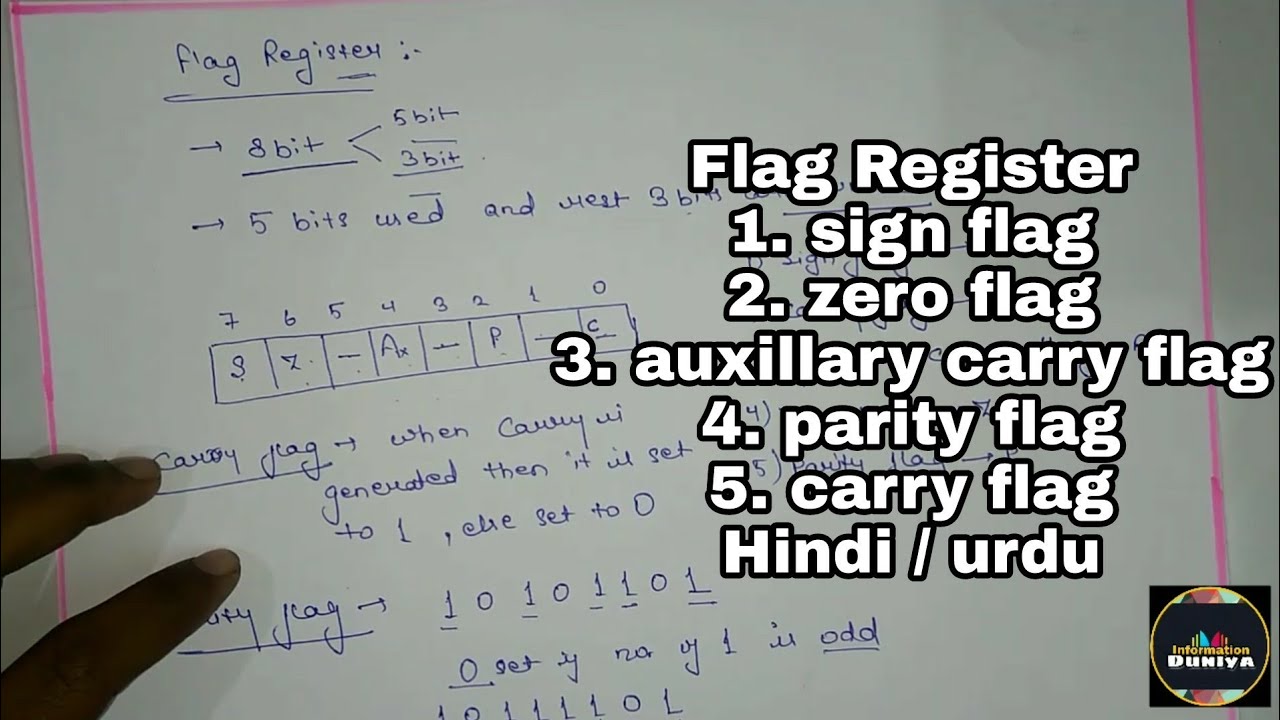 Flag Register :-
→ 8bit
5bit
3bit
→ 5 bits used and rest 3 bits
7 6 5 4 3 2 1 0
S Z - Ax - P - C
Carry flag → when carry is
generated then it is set
to 1 , else set to 0
flag → 1 0 1 0 1 1 0 1
0 set if no of 1 is odd
1 0 1 1 1 1 0 1
4)
5) Parity flag →
Flag Register
1. sign flag
2. zero flag
3. auxillary carry flag
4. parity flag
5. carry flag
Hindi / urdu
Information
DUNIYA